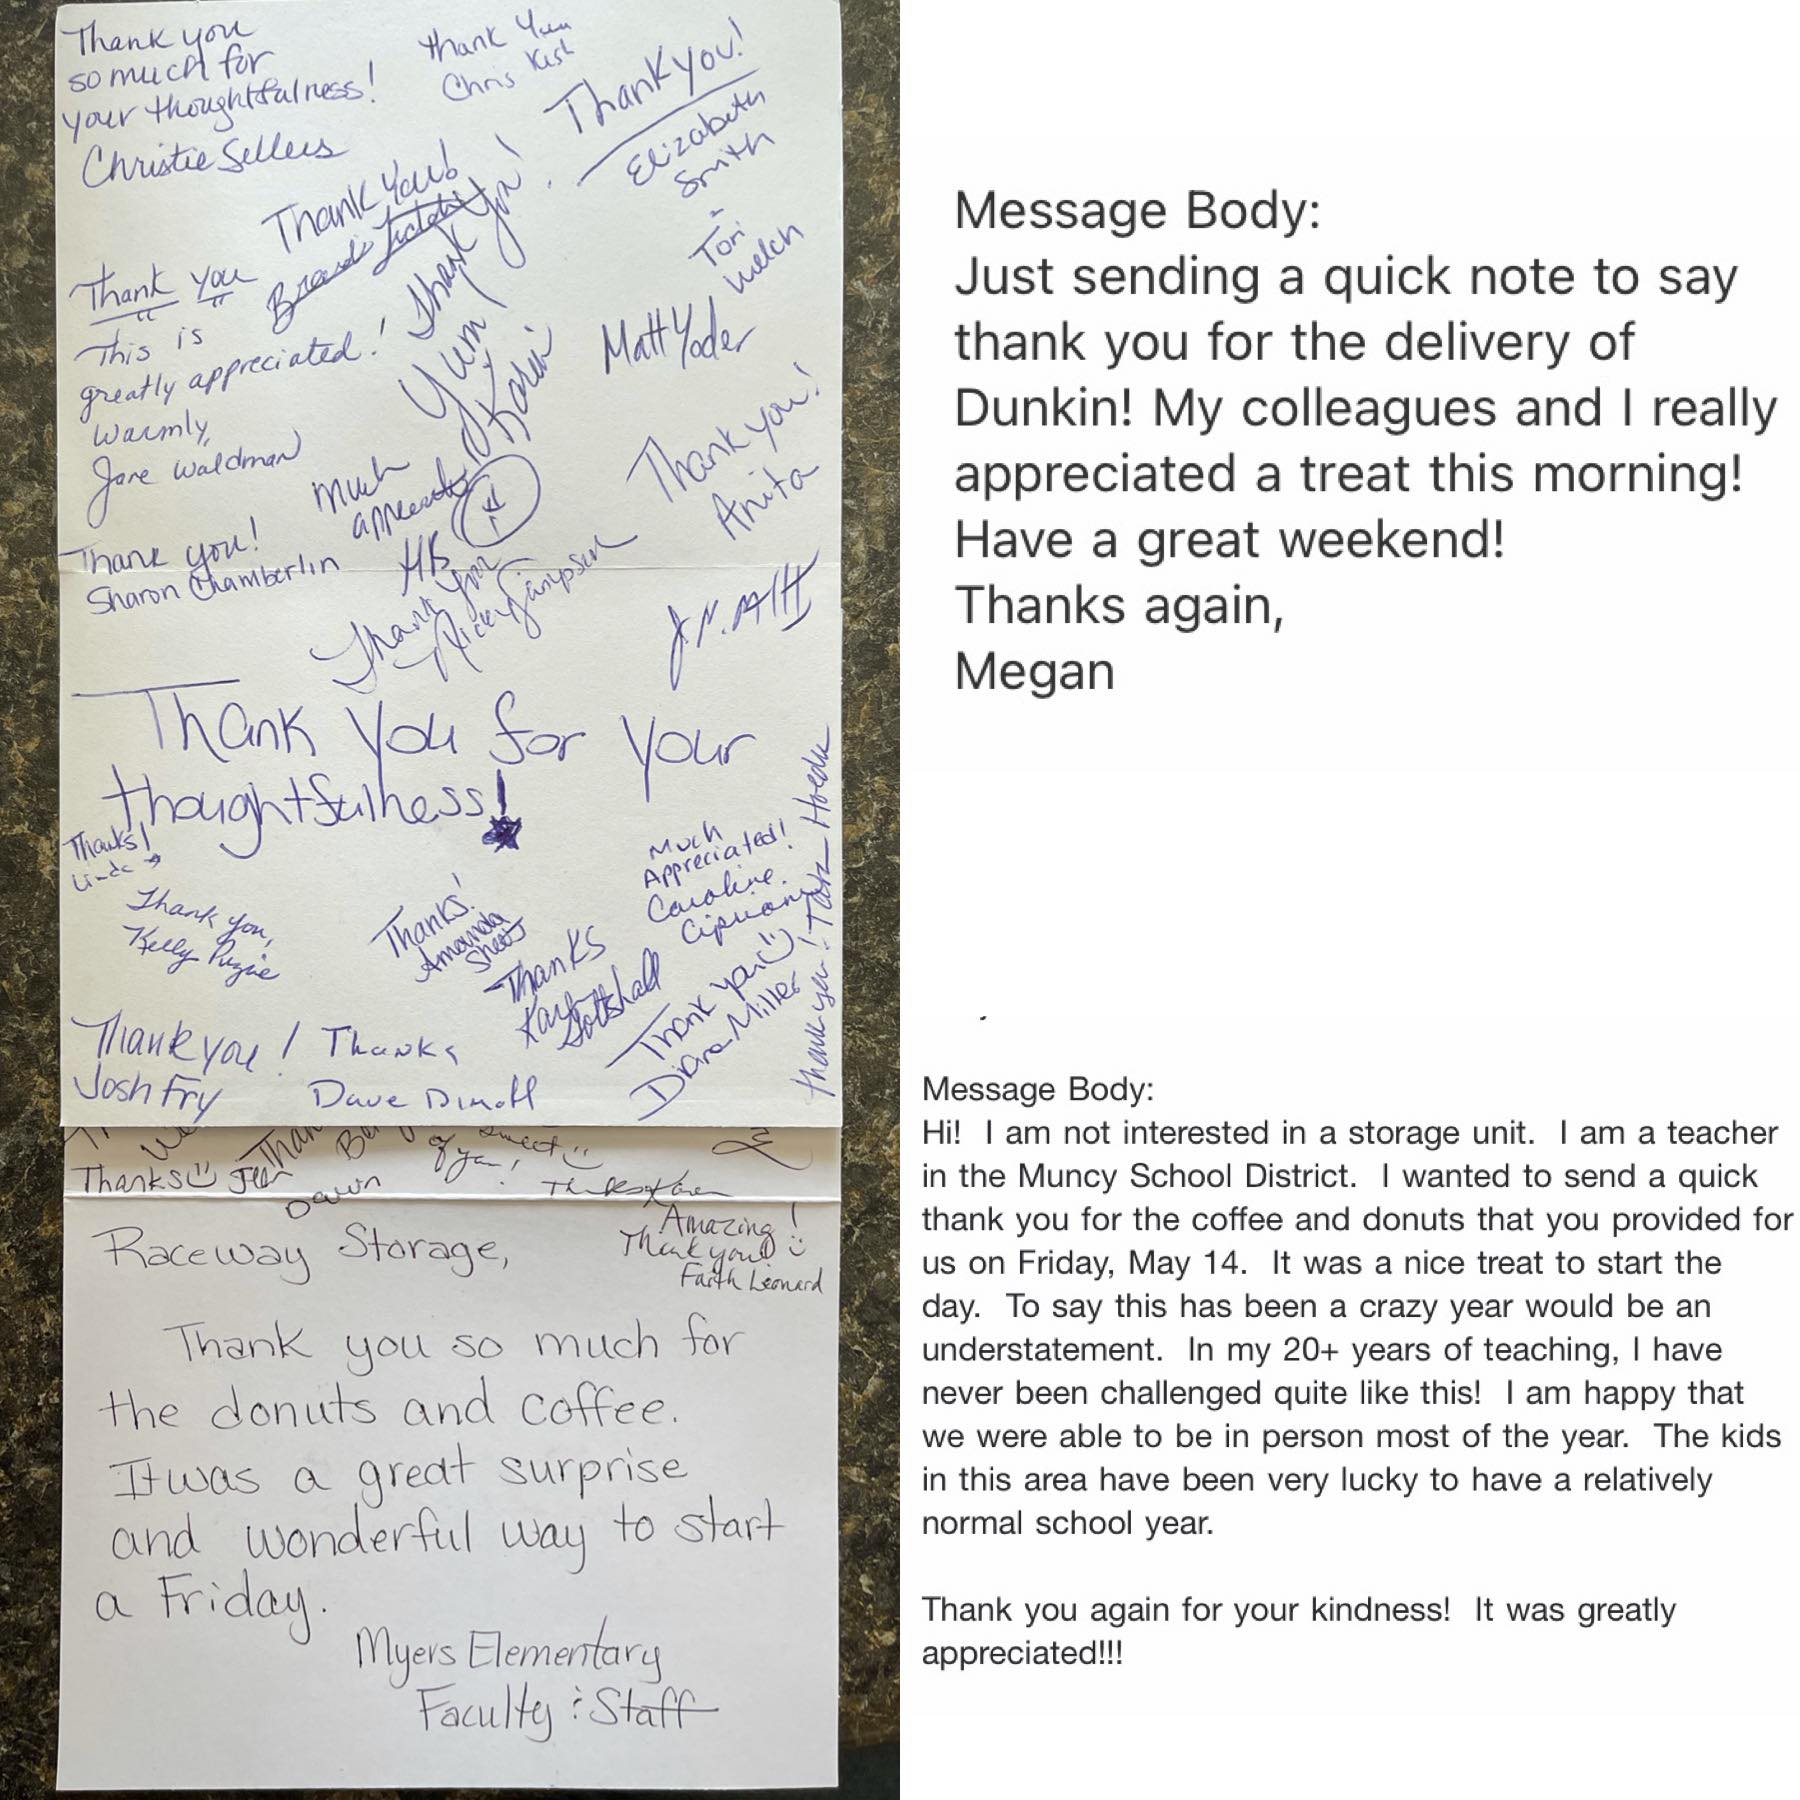 Thank you
so much for
your thoughtfulness!
Christie Sellers
Thank You
Chris Kish
Thank you!
Elizabeth
Smith
Thank You!
Thank you!
Yum!
Karin
Tori
Welch
Thank you
This is
greatly appreciated!
Warmly,
Jane Waldman
Matt Yoder
Much
appreciated
HB
Thank you!
Anita
Thank you!
Sharon Chamberlin
Thank you
Thank you for your
thoughtfulness!
Thanks!
Linda
Thank you,
Kelly
Thanks!
Amanda
Sheets
Much
Appreciated!
Caroline
Thanks
Kayla
Gottshall
Thank you
Diana Miller
Thank you!
Thank you!
Josh Fry
Thanks,
Dave
Thanks Jen
Dawn
of you!
Thanks Karen
Amazing!
Thank you!!
Faith Leonard
Raceway Storage,
Thank you so much for
the donuts and coffee.
It was a great surprise
and wonderful way to start
a Friday.
Myers Elementary
Faculty & Staff
Message Body:
Just sending a quick note to say
thank you for the delivery of
Dunkin! My colleagues and I really
appreciated a treat this morning!
Have a great weekend!
Thanks again,
Megan
Message Body:
Hi! I am not interested in a storage unit. I am a teacher
in the Muncy School District. I wanted to send a quick
thank you for the coffee and donuts that you provided for
us on Friday, May 14. It was a nice treat to start the
day. To say this has been a crazy year would be an
understatement. In my 20+ years of teaching, I have
never been challenged quite like this! I am happy that
we were able to be in person most of the year. The kids
in this area have been very lucky to have a relatively
normal school year.
Thank you again for your kindness! It was greatly
appreciated!!!